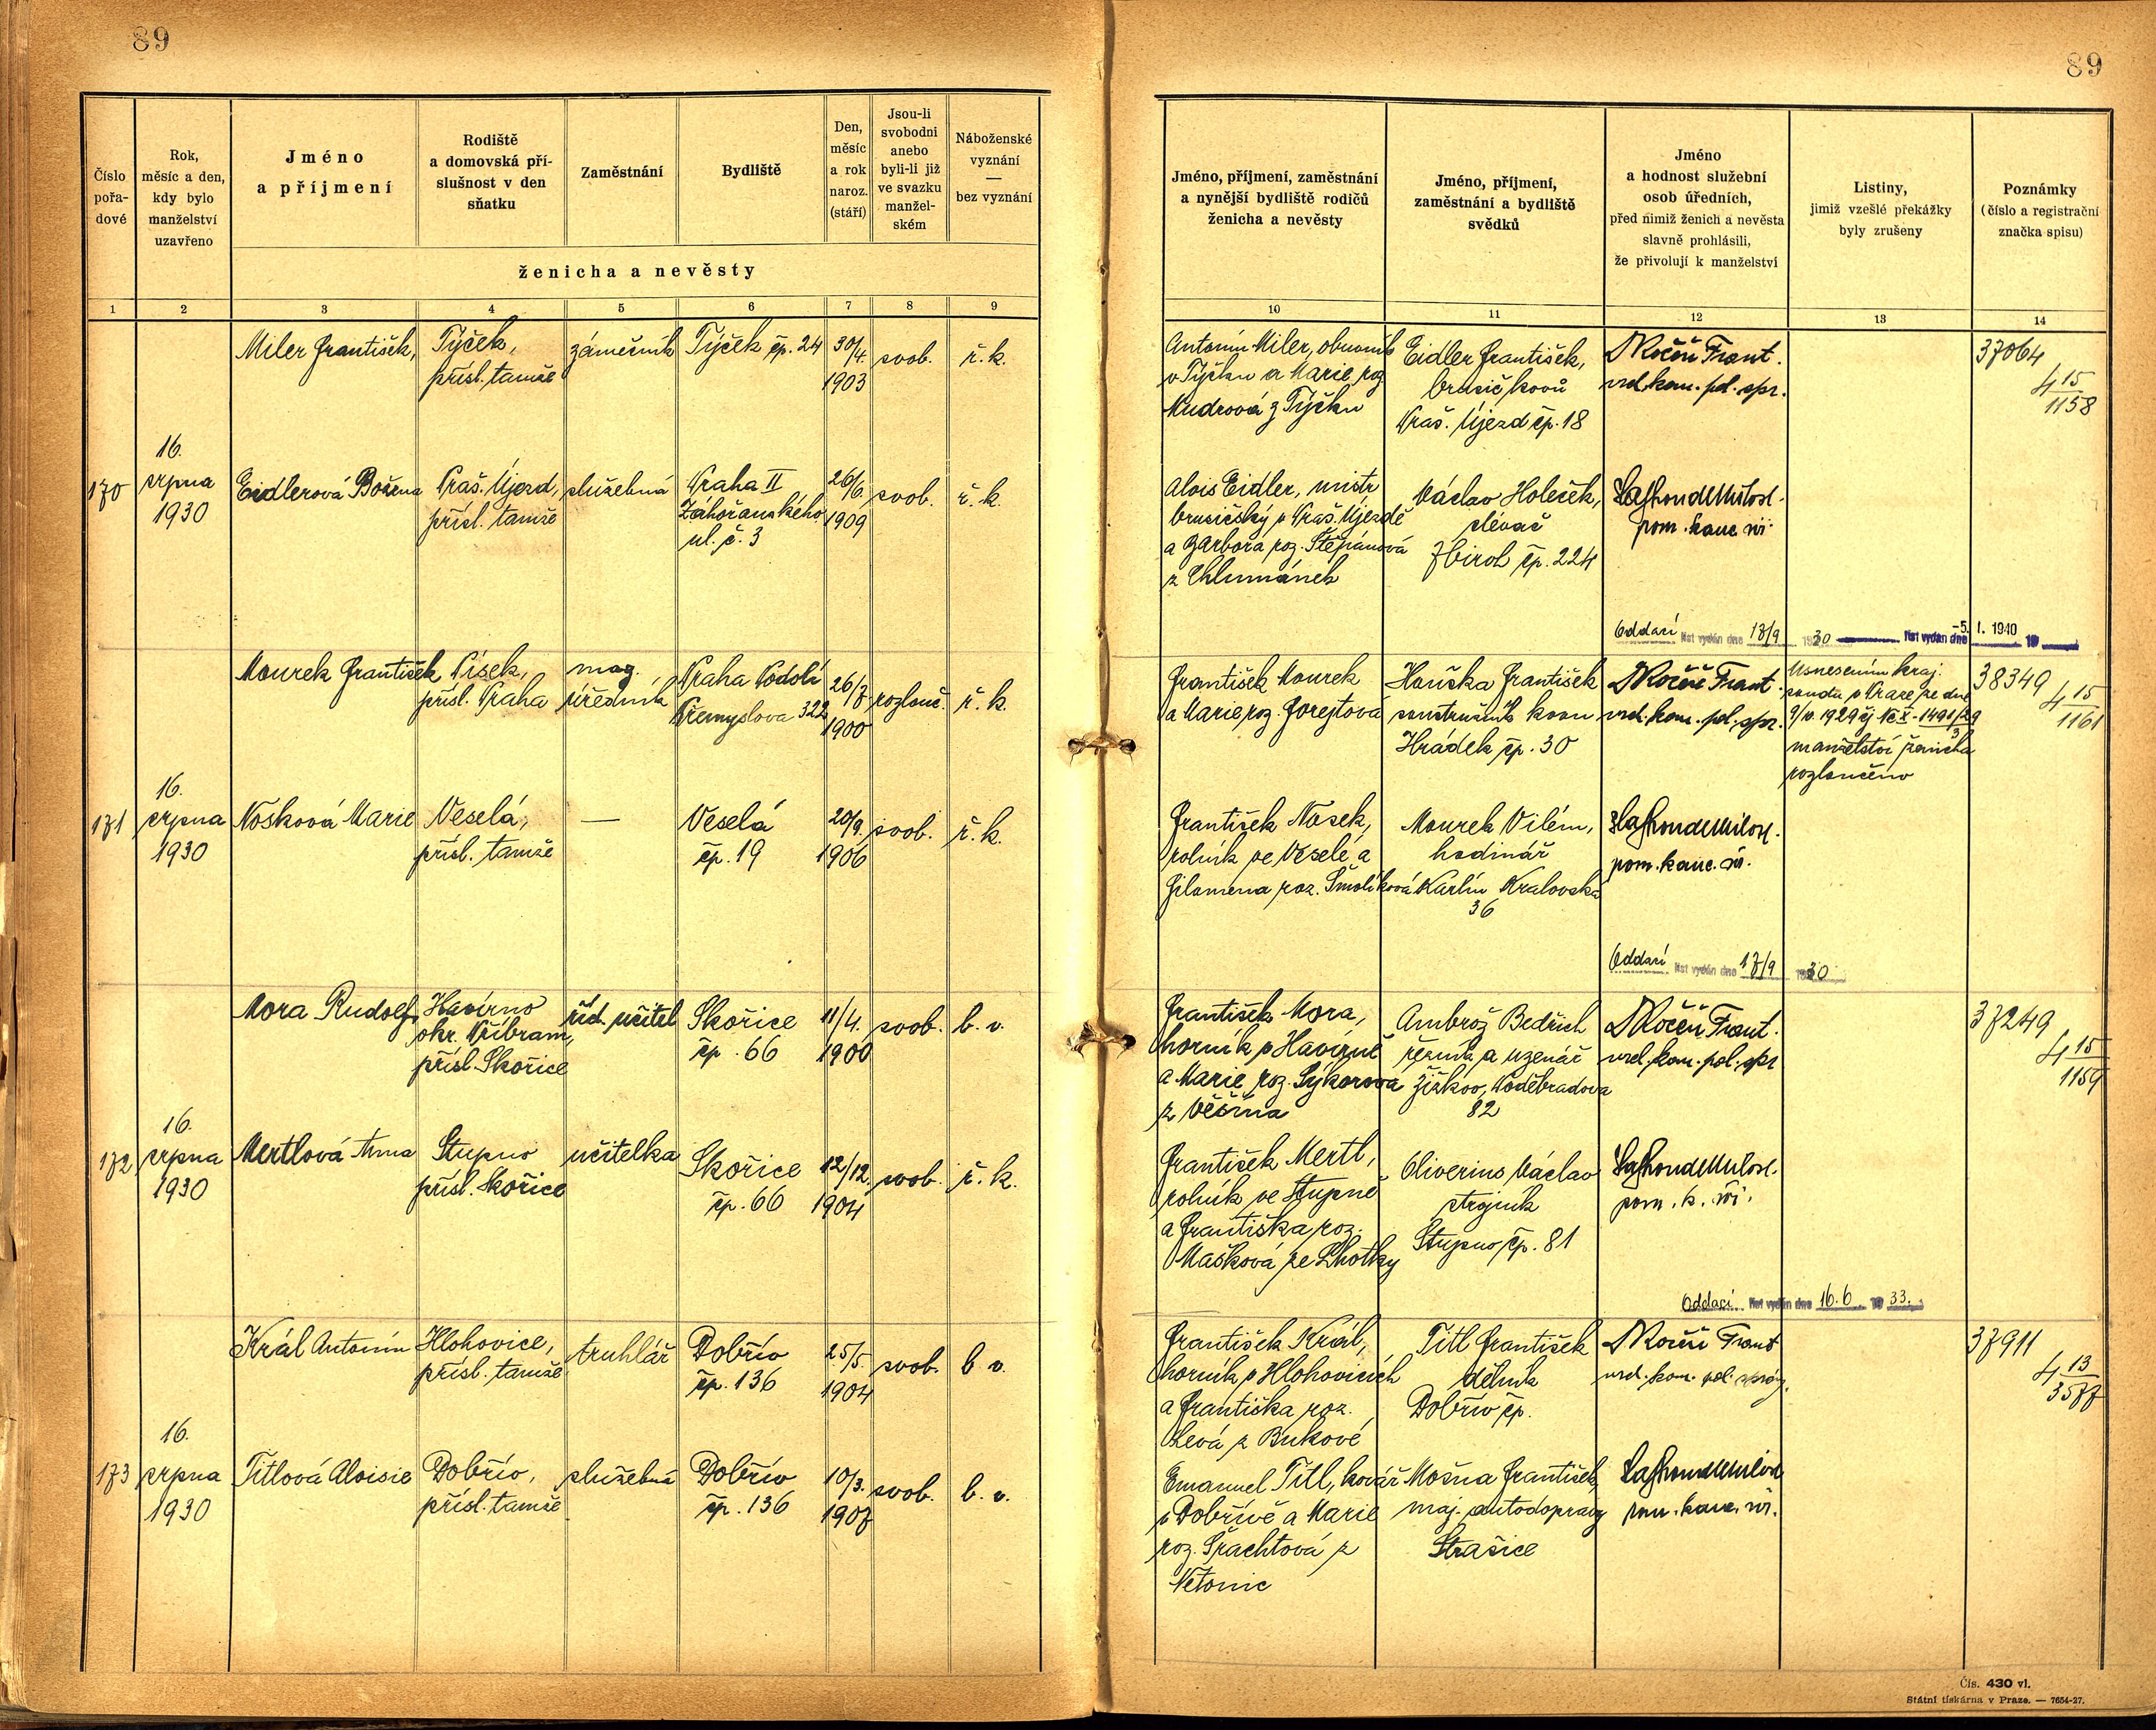 89
89
Číslo pořa-dové
Rok, měsíc a den, kdy bylo manželství uzavřeno
Jméno a příjmení
Rodiště a domovská pří-slušnost v den sňatku
Zaměstnání
Bydliště
Den, měsíc a rok naroz. (stáří)
Jsou-li svobodni anebo byli-li již ve svazku manžel-ském
Náboženské vyznání — bez vyznání
ženicha a nevěsty
Jméno, příjmení, zaměstnání a nynější bydliště rodičů ženicha a nevěsty
Jméno, příjmení, zaměstnání a bydliště svědků
Jméno a hodnost služební osob úředních, před nimiž ženich a nevěsta slavně prohlásili, že přivolují k manželství
Listiny, jimiž vzešlé překážky byly zrušeny
Poznámky (číslo a registrační značka spisu)
1 2 3 4 5 6 7 8 9
10 11 12 13 14
Miler František,
Týček,
přísl. tamže
zámečník
Týček čp. 24
30/4.
1903
svob.
ř. k.
Antonín Miler, obuvník
v Týčku a Marie roz.
Mudrová z Týčku
Eidler František,
brusič kovů
Praš. Újezd čp. 18
Kočí Frant.
úřed. kom. pol. spr.
37064
4 15/1158
170
16.
srpna
1930
Eidlerová Božena
Praš. Újezd,
přísl. tamže
služebná
Praha II
Záhořanského
ul. č. 3
26/6.
1909
svob.
ř. k.
Alois Eidler, mistr
brusičský v Praš. Újezdě
a Barbora roz. Štěpánová
z Chlumánek
Václav Holeček,
slévač
Zbiroh čp. 224
pom. kanc. úř.
Oddací list vydán dne 17/9 1930
list vydán dne -5. I. 1940 19
Mourek František
Písek,
přísl. Praha
mag.
úředník
Praha Podolí
Přemyslova 322
26/7
1900
rozlouč.
ř. k.
František Mourek
a Marie roz. Forejtova
Houška František
soustružník kovu
Hrádek čp. 30
Kočí Frant.
úřed. kom. pol. spr.
Usnesením kraj.
soudu v Praze ze dne
9/10. 1929 čj Nc X-1491/29
manželství ženicha
rozloučeno
38349
4 15/1161
171
16.
srpna
1930
Nosková Marie
Veselá,
přísl. tamže
—
Veselá
čp. 19
20/9.
1906
svob.
ř. k.
František Nosek,
rolník ve Veselé a
Filomena roz. Šmolíková
Mourek Vilém,
hodinář
Karlín Kralovská
36
pom. kanc. úř.
Oddací list vydán dne 17/9 1930
Mora Rudolf,
Havírno
okr. Příbram,
přísl. Skořice
říd. učitel
Skořice
čp. 66
11/4.
1900
svob.
b. v.
František Mora,
horník v Havírně
a Marie roz. Sýkorova
z Věšína
Ambrož Bedřich
řezník a uzenář
Žižkov, Poděbradova
82
Kočí Frant.
úřed. kom. pol. spr
37249
4 15/1159
172
16.
srpna
1930
Mertlová Anna
Stupno
přísl. Skořice
učitelka
Skořice
čp. 66
12/12.
1904
svob.
ř. k.
František Mertl,
rolník ve Stupně
a Františka roz.
Mašková ze Lhotky
Oliverius Václav
strojník
Stupno čp. 81
pom. k. úř.
Oddací list vydán dne 16. 6. 1933.
Král Antonín
Hlohovice,
přísl. tamže
truhlář
Dobřív
čp. 136
25/5.
1904
svob.
b. v.
František Král,
horník v Hlohovicích
a Františka roz.
Levá z Bukové
Titl František
dělník
Dobřív čp.
Kočí Frant
úřed. kom. pol. správy.
37911
4 13/3577
173
16.
srpna
1930
Titlová Aloisie
Dobřív,
přísl. tamže
služebná
Dobřív
čp. 136
10/3.
1907
svob.
b. v.
Emanuel Titl, kovář
v Dobřívě a Marie
roz. Šrachtová z
Netonic
Mošna František,
maj. autodopravy
Strašice
pom. kanc. úř.
Čís. 430 vl.
Státní tiskárna v Praze. — 7654-27.